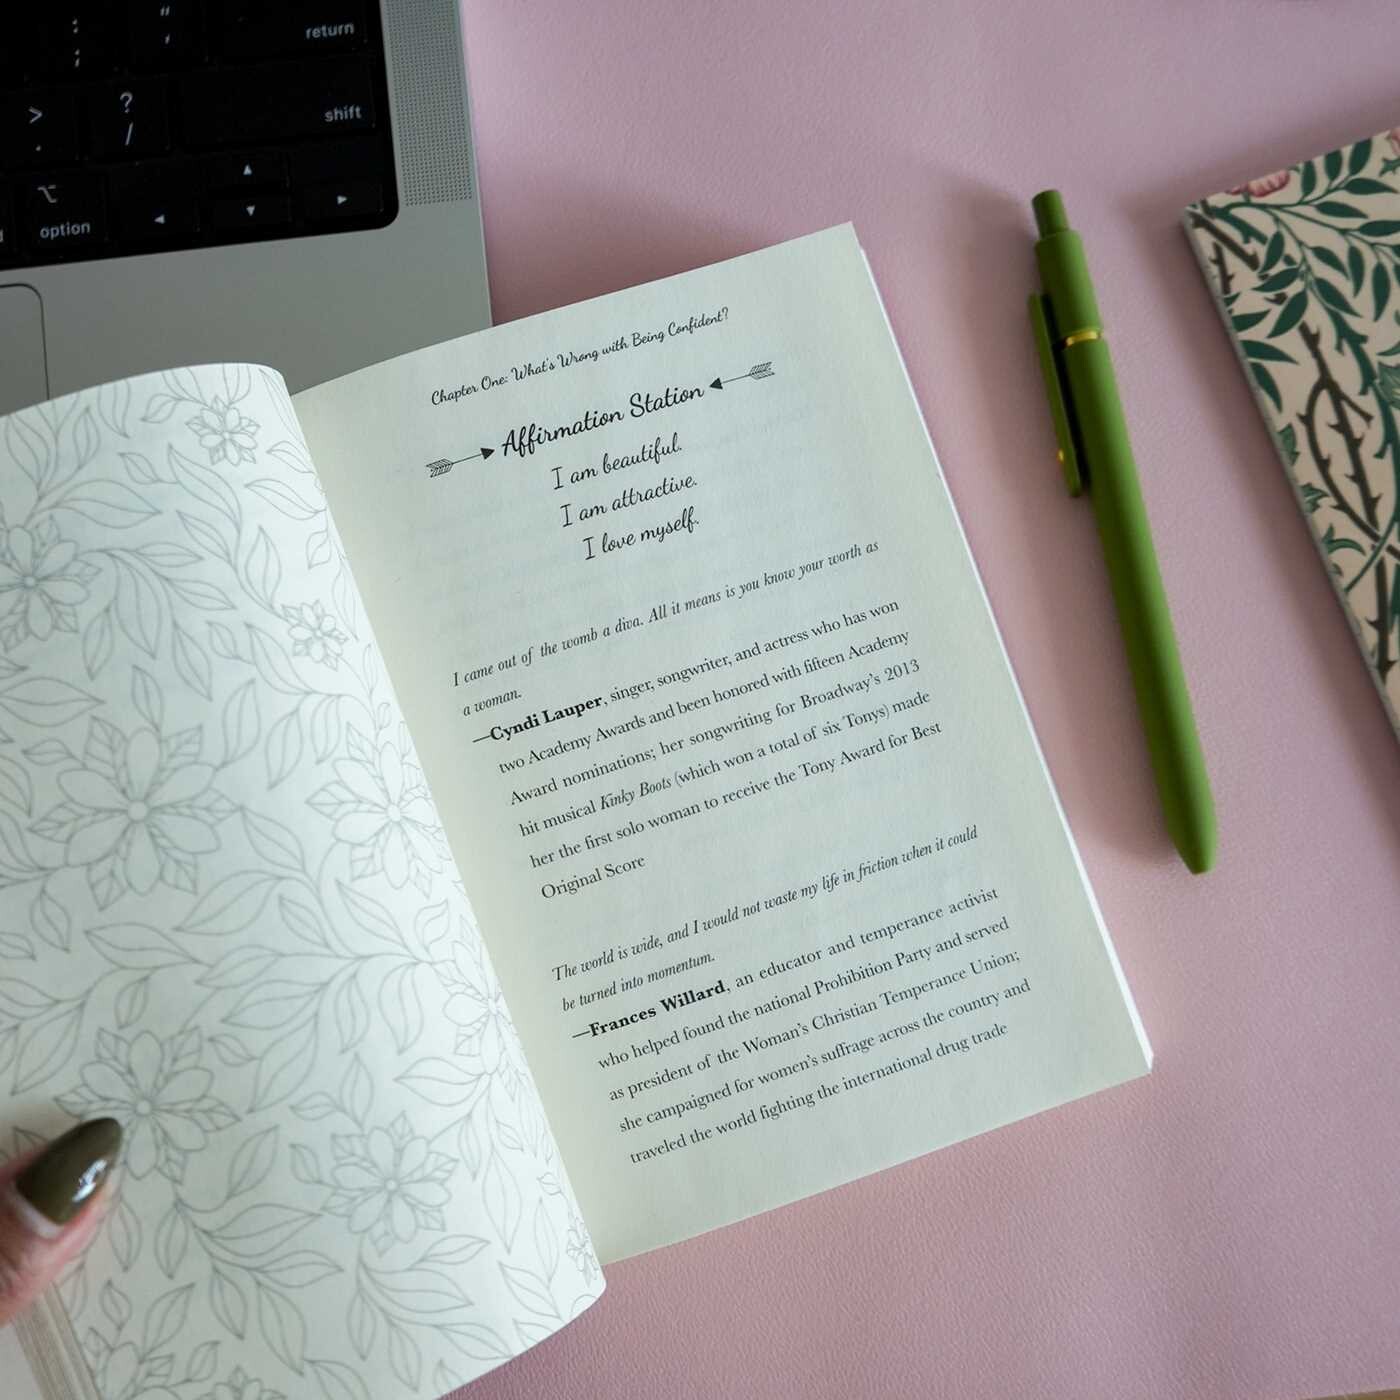 : "
; '
return
> ?
. /
shift
option
Chapter One: What's Wrong with Being Confident?
Affirmation Station
I am beautiful.
I am attractive.
I love myself.
I came out of the womb a diva. All it means is you know your worth as
a woman.
—Cyndi Lauper, singer, songwriter, and actress who has won
two Academy Awards and been honored with fifteen Academy
Award nominations; her songwriting for Broadway's 2013
hit musical Kinky Boots (which won a total of six Tonys) made
her the first solo woman to receive the Tony Award for Best
Original Score
The world is wide, and I would not waste my life in friction when it could
be turned into momentum.
—Frances Willard, an educator and temperance activist
who helped found the national Prohibition Party and served
as president of the Woman's Christian Temperance Union;
she campaigned for women's suffrage across the country and
traveled the world fighting the international drug trade